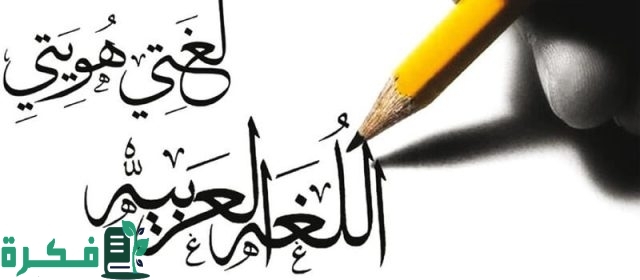 لغتي هُويتي
اللُغه العربيه
فكرة